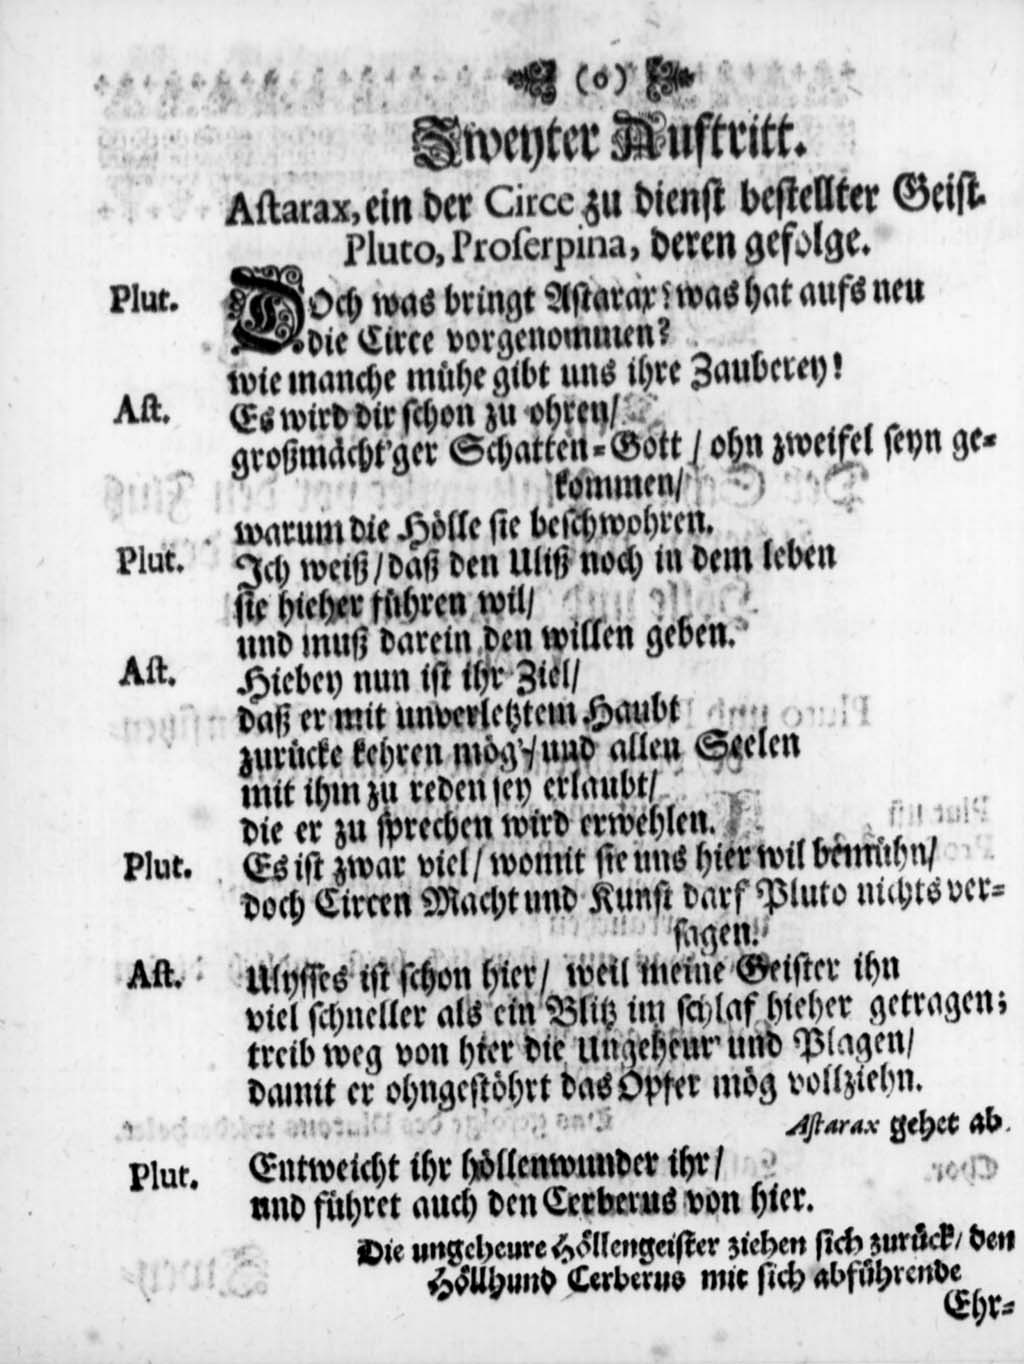 (o)
Zweyter Auftritt.
Astarax, ein der Circe zu dienst bestellter Geist.
Pluto, Proserpina, deren gefolge.
Plut. DOch was bringt Astarax? was hat aufs neu
die Circe vorgenommen?
wie manche mühe gibt uns ihre Zauberey!
Ast. Es wird dir schon zu ohren/
großmächt'ger Schatten-Gott / ohn zweifel seyn ge-
kommen/
warum die Hölle sie beschwohren.
Plut. Ich weiß/ daß den Uliß noch in dem leben
sie hieher führen wil/
und muß darein den willen geben.
Ast. Hiebey nun ist ihr Ziel/
daß er mit unverletztem Haubt
zurücke kehren mög'/ und allen Seelen
mit ihm zu reden sey erlaubt/
die er zu sprechen wird erwehlen.
Plut. Es ist zwar viel/ womit sie uns hier wil bemühn/
doch Circen Macht und Kunst darf Pluto nichts ver-
sagen.
Ast. Ulysses ist schon hier/ weil meine Geister ihn
viel schneller als ein Blitz im schlaf hieher getragen;
treib weg von hier die Ungeheur und Plagen/
damit er ohngestöhrt das Opfer mög vollziehn.
Astarax gehet ab.
Plut. Entweicht ihr höllenwunder ihr/
und führet auch den Cerberus von hier.
Die ungeheure Höllengeister ziehen sich zurück/ den
Höllhund Cerberus mit sich abführende
Ehr-